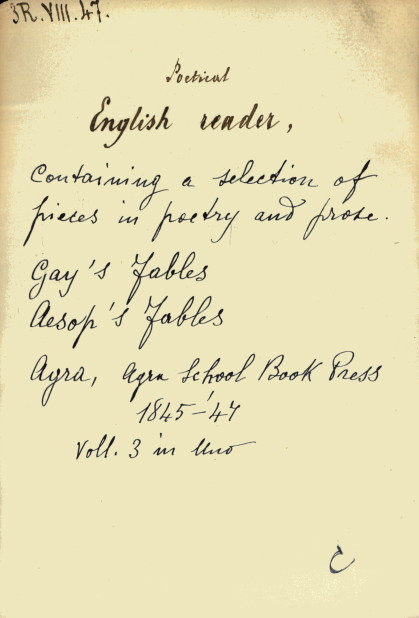 3R.VIII.47.
Poetical
English reader,
Containing a selection of
pieces in poetry and prose.
Gay's Fables
Aesop's Fables
Agra, Agra School Book Press
1845-'47
Voll. 3 in Uno
C